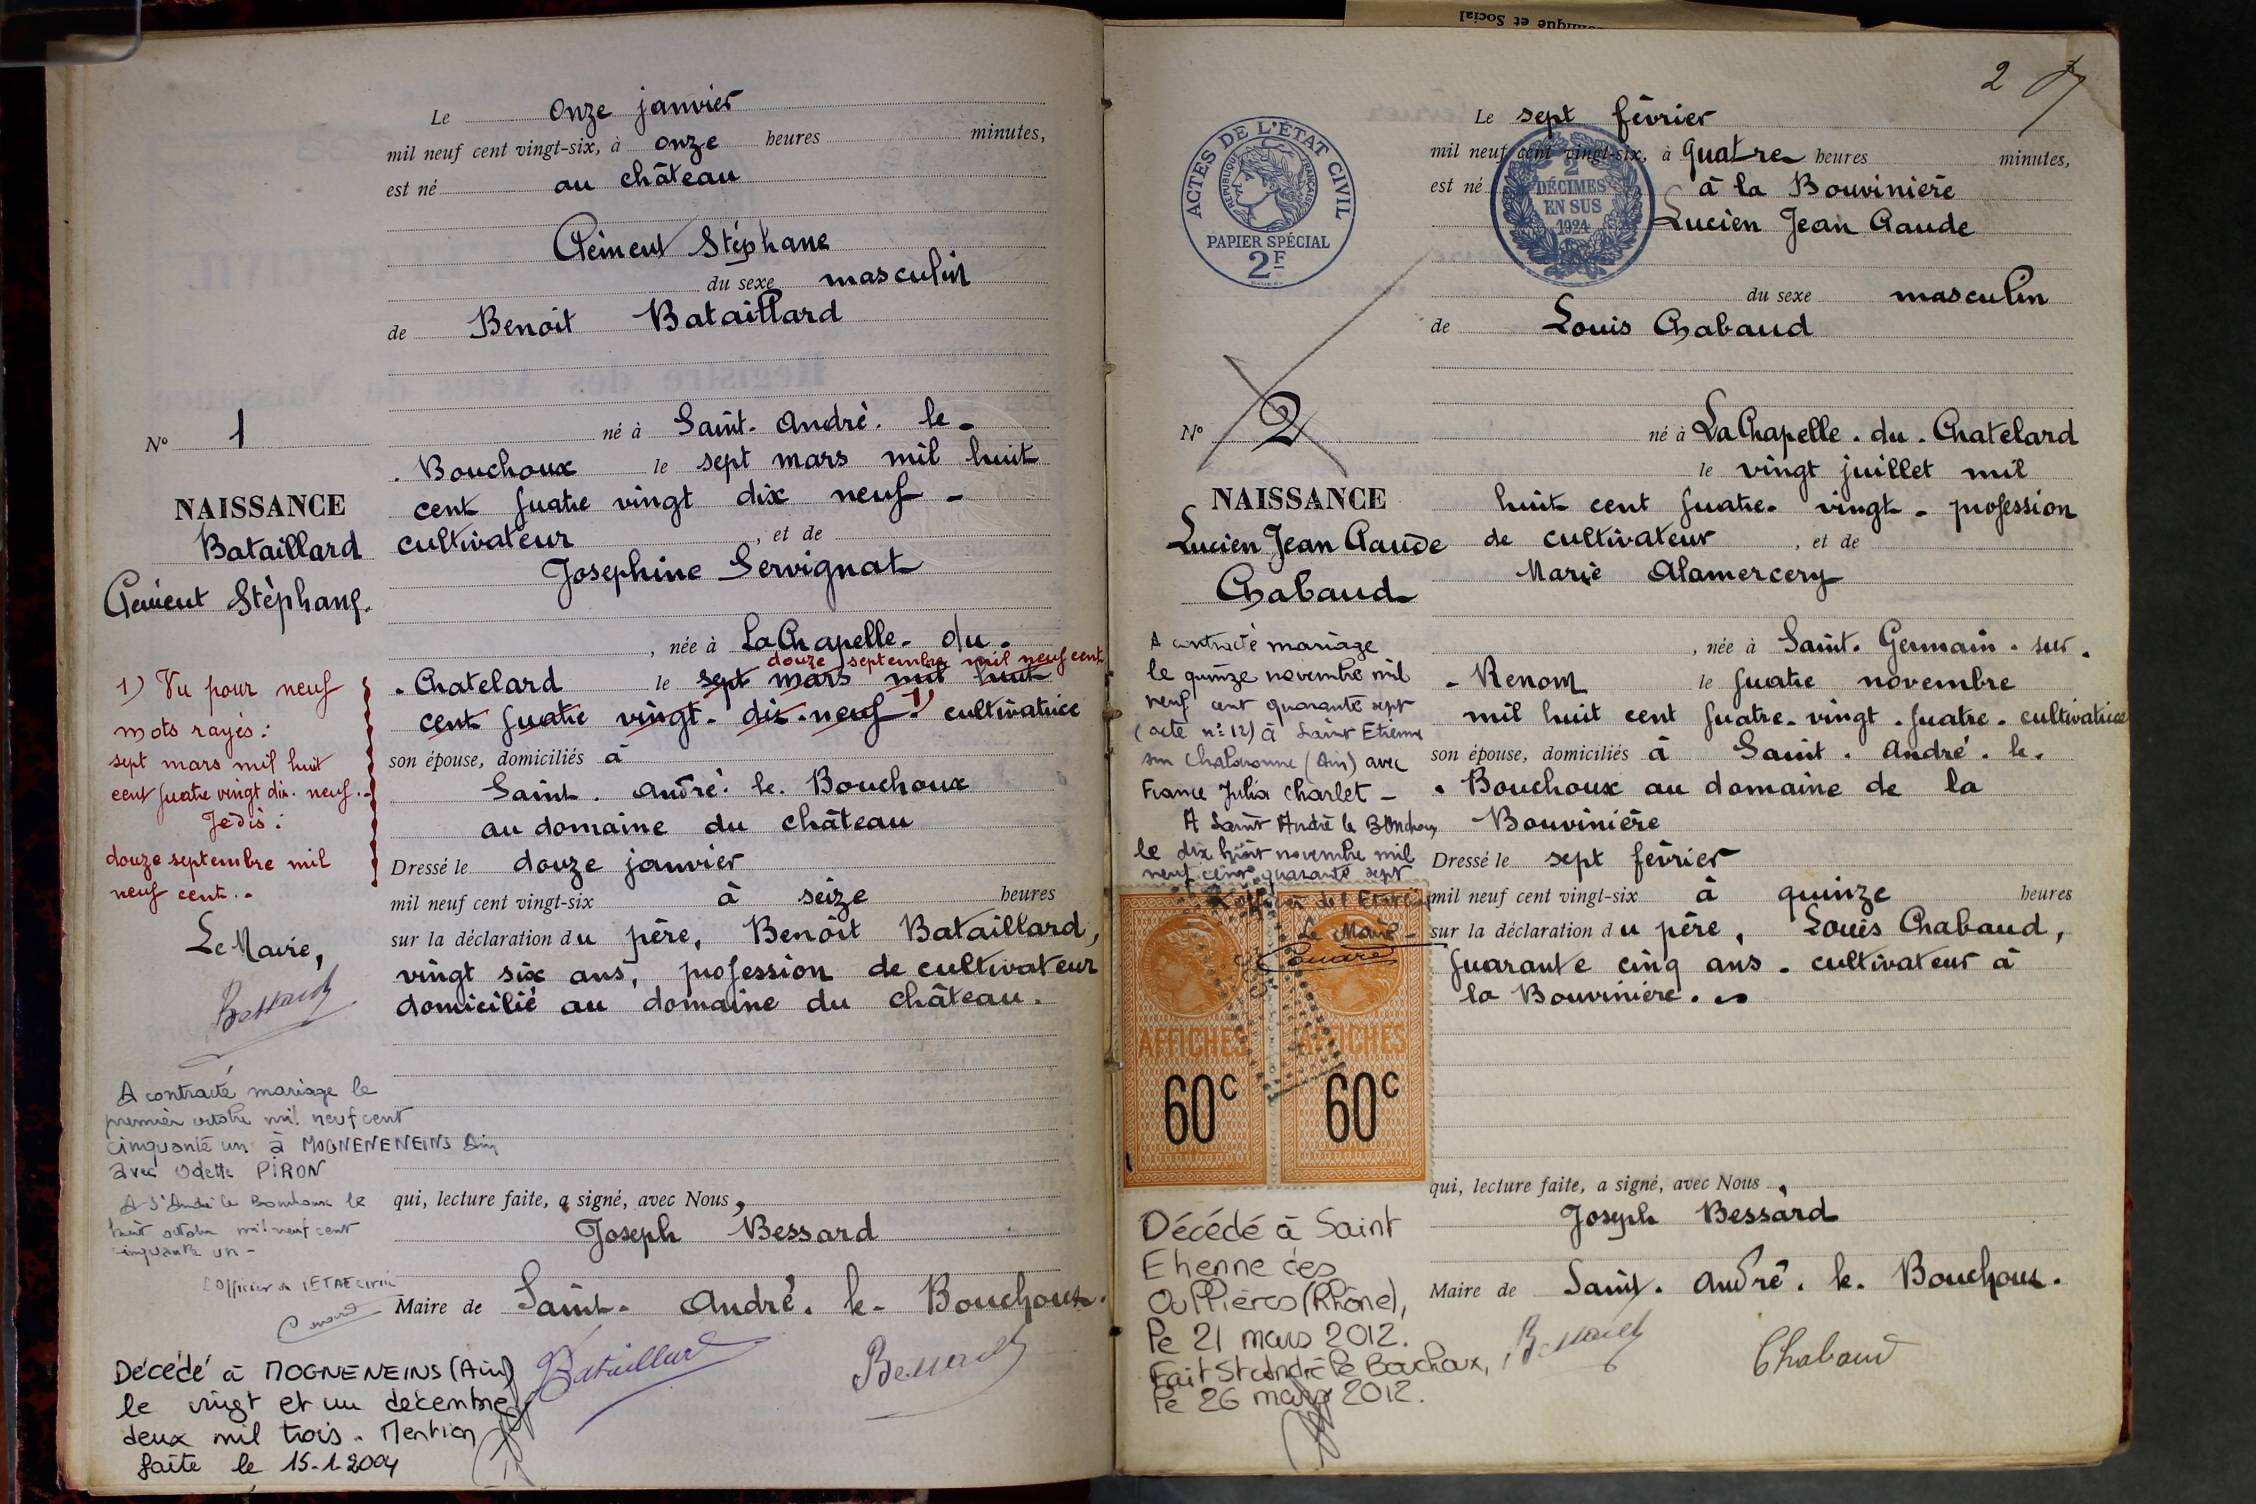 Le onze janvier
mil neuf cent vingt-six, à onze heures minutes,
est né au château
Clément Stéphane
du sexe masculin
de Benoit Bataillard
né à Saint. André. le.
. Bouchoux le sept mars mil huit
cent quatre vingt dix neuf -
cultivateur , et de
Josephine Servignat
, née à La Chapelle. du.
douze septembre mil neuf cent
. Chatelard le sept mars mil huit
cent quatre vingt. dix. neuf. 1) cultivatrice
son épouse, domiciliés à
Saint. André. le. Bouchoux
au domaine du château
Dressé le douze janvier
mil neuf cent vingt-six à seize heures
sur la déclaration du père, Benoît Bataillard,
vingt six ans, profession de cultivateur
domicilié au domaine du château.
qui, lecture faite, a signé, avec Nous,
Joseph Bessard
Maire de Saint. André. le. Bouchoux.
Bataillard Bessard
N° 1
NAISSANCE
Bataillard
Clément Stéphane.
1) Vu pour neuf
mots rayés:
sept mars mil huit
cent quatre vingt dix. neuf.
Je dis:
douze septembre mil
neuf cent..
Le Maire,
Bessard
A contracté mariage le
premier octobre mil neuf cent
cinquante un à MOGNENENEINS Ain
avec Odette PIRON
A St André le Bouchoux le
huit octobre mil neuf cent
cinquante un -
L'officier de l'ETAT CIVIL
Décédé à MOGNENEINS (Ain)
le vingt et un décembre
deux mil trois. Mention
faite le 15-1-2004
omique et Social
2
ACTES DE L'ETAT CIVIL
REPUBLIQUE FRANÇAISE
PAPIER SPÉCIAL
2F
2
DÉCIMES
EN SUS
1924
Le sept février
mil neuf cent vingt-six, à quatre heures minutes,
est né à la Bouvinière
Lucien Jean Claude
du sexe masculin
de Louis Chabaud
né à La Chapelle. du. Chatelard
le vingt juillet mil
huit cent quatre. vingt - profession
de cultivateur , et de
Marie Alamercery
, née à Saint. Germain. sur.
- Renom le quatre novembre
mil huit cent quatre. vingt. quatre. cultivatrice
son épouse, domiciliés à Saint. André. le.
. Bouchoux au domaine de la
Bouvinière
Dressé le sept février
mil neuf cent vingt-six à quinze heures
sur la déclaration du père, Louis Chabaud,
quarante cinq ans. cultivateur à
la Bouvinière.
qui, lecture faite, a signé, avec Nous,
Joseph Bessard
Maire de Saint. André. le. Bouchoux.
Bessard Chabaud
N° 2
NAISSANCE
Lucien Jean Claude
Chabaud
A contracté mariage
le quinze novembre mil
neuf cent quarante sept
(acte n° 12) à Saint Etienne
sur Chalaronne (Ain) avec
France Julia Charlet -
A Saint André le Bouchoux
le dix huit novembre mil
neuf cent quarante sept
L'officier de l'Etat Civil
Le Maire
AFFICHES
60c
AFFICHES
60c
Décédé à Saint
Etienne des
Oullières (Rhône),
le 21 mars 2012.
Fait St André le Bouchoux,
le 26 mars 2012.